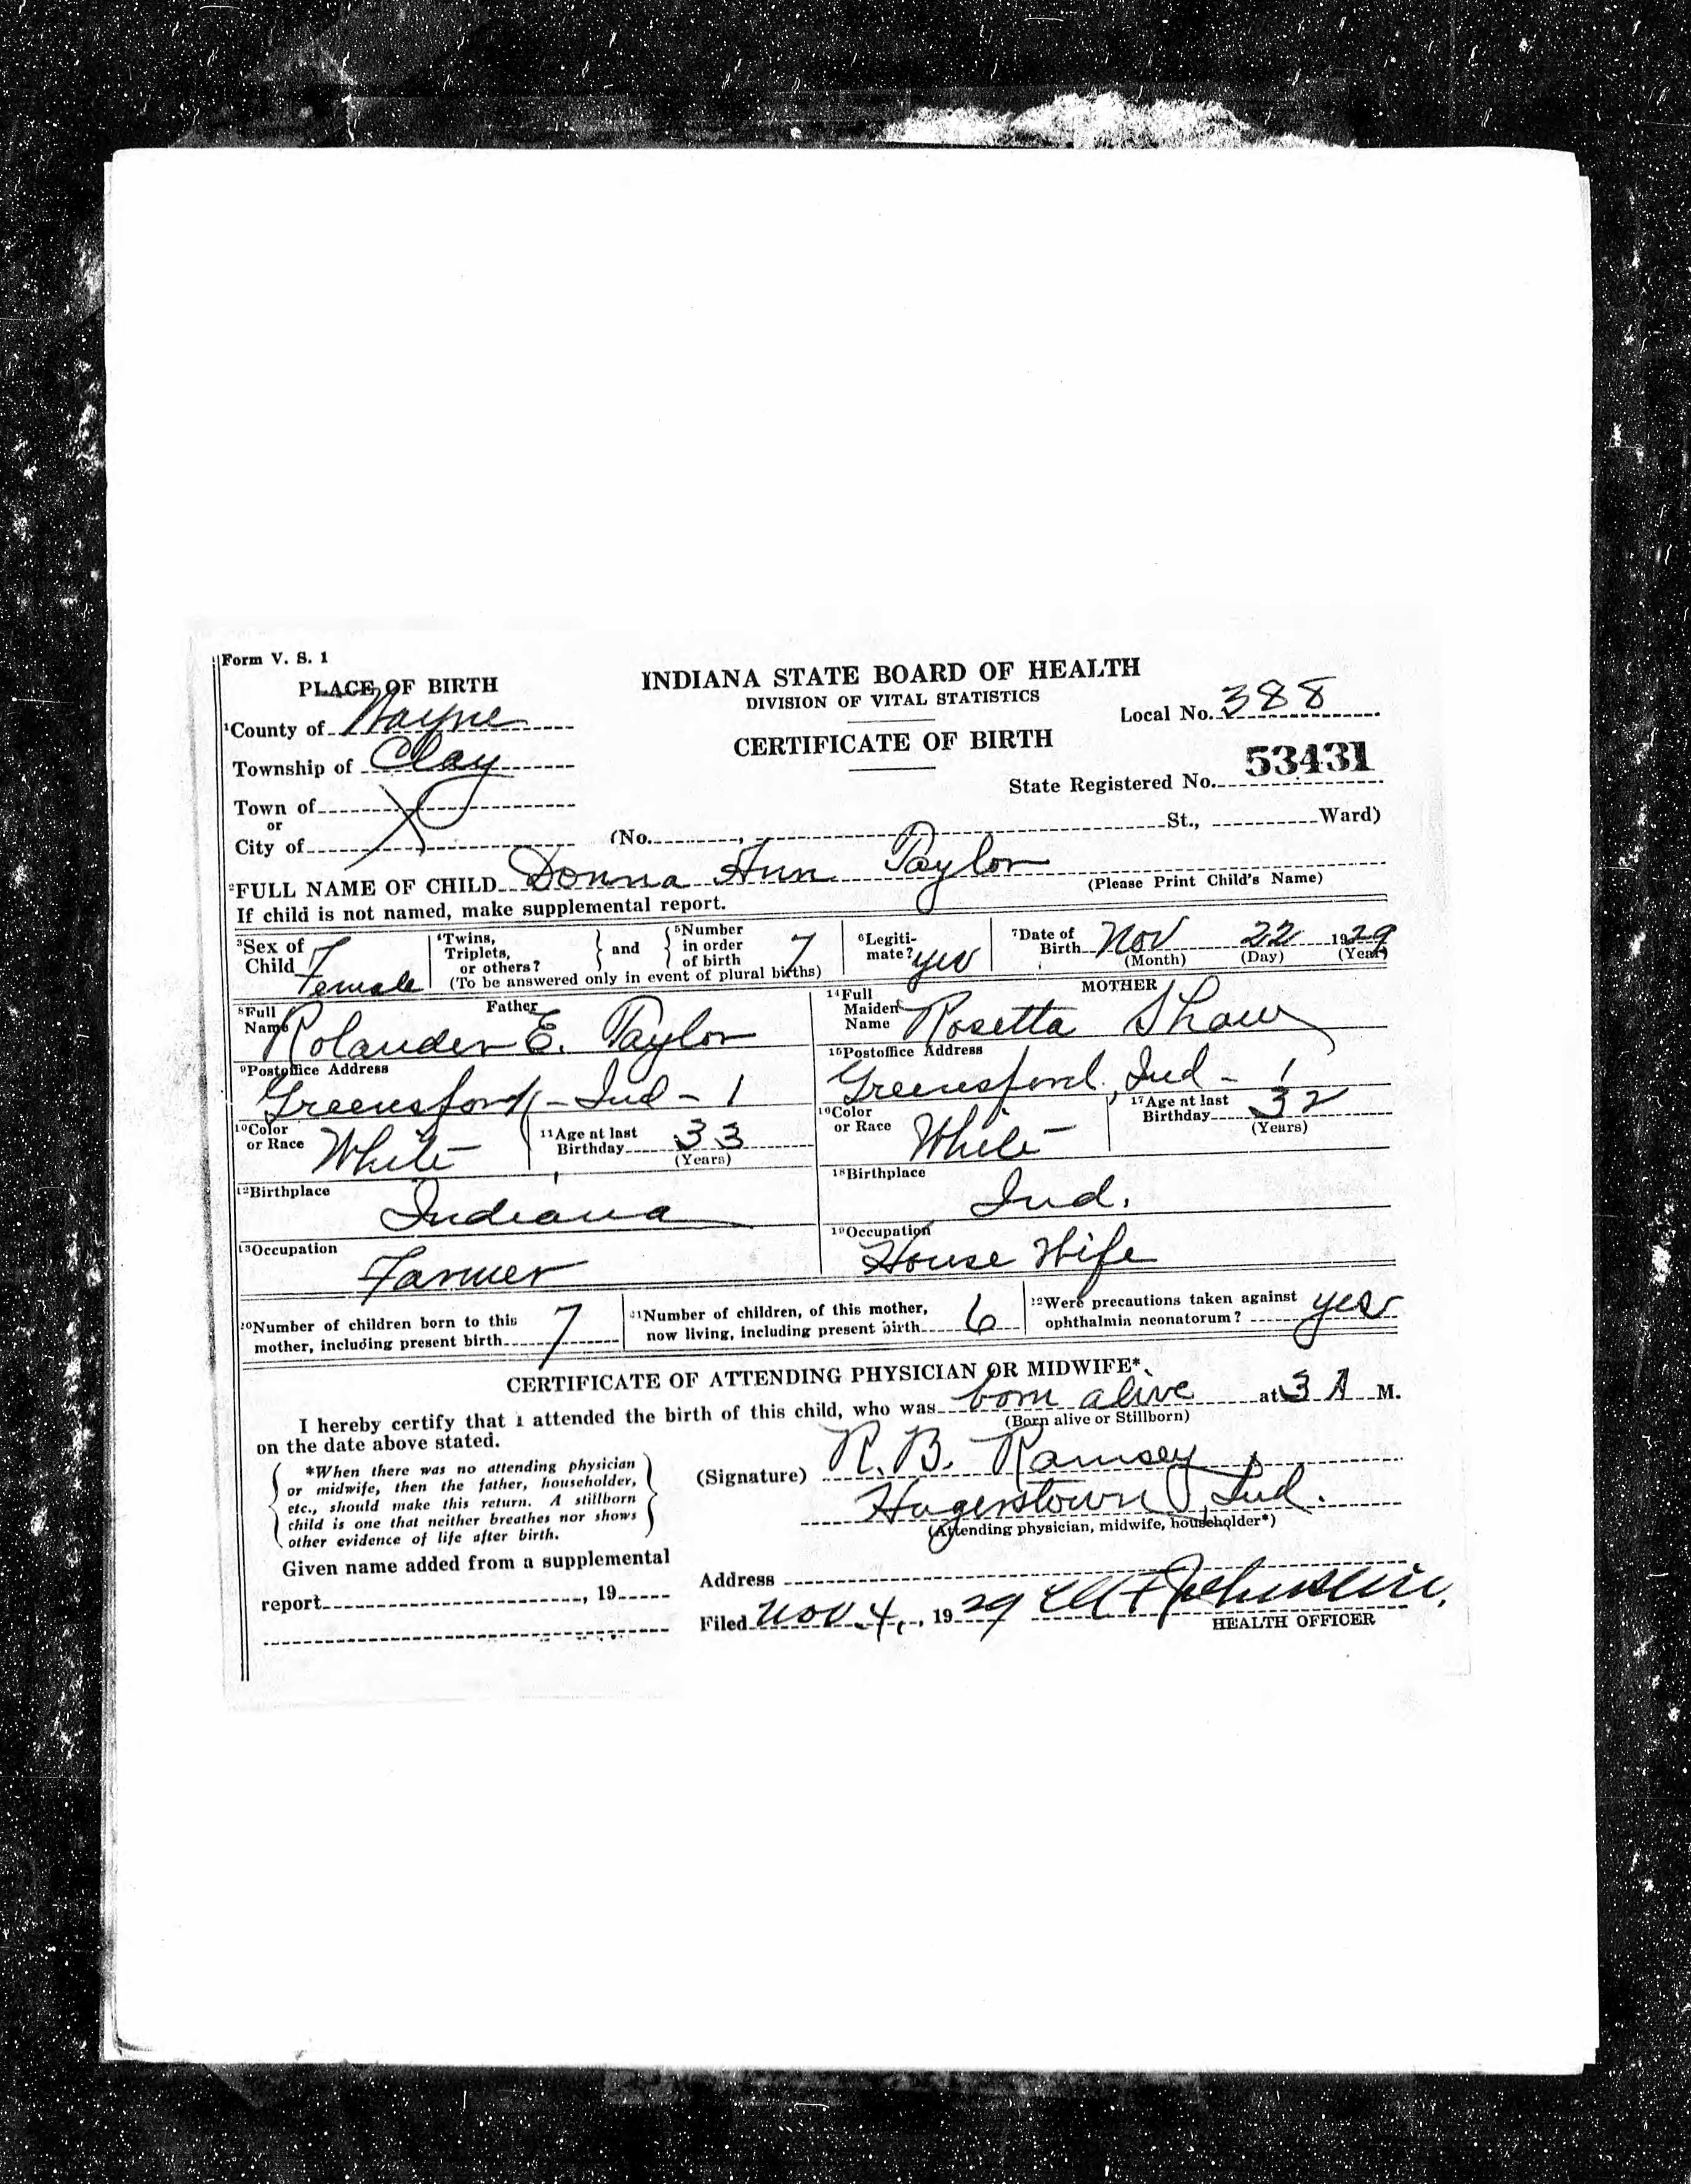 Form V. S. 1
PLACE OF BIRTH
INDIANA STATE BOARD OF HEALTH
DIVISION OF VITAL STATISTICS
1County of Wayne
Local No. 388
Township of Clay
CERTIFICATE OF BIRTH
53431
State Registered No.
Town of
or
City of
(No. , St., Ward)
2FULL NAME OF CHILD Donna Ann Taylor
(Please Print Child's Name)
If child is not named, make supplemental report.
3Sex of Child Female
4Twins, Triplets, or others? and 5Number in order of birth 7
(To be answered only in event of plural births)
6Legitimate? yes
7Date of Birth Nov 22 1929
(Month) (Day) (Year)
Father
8Full Name Rolander E. Taylor
MOTHER
14Full Maiden Name Rosetta Shaw
9Postoffice Address
Greensfork - Ind - 1
15Postoffice Address
Greensford. Ind - 1
10Color or Race White
11Age at last Birthday 33
(Years)
16Color or Race White
17Age at last Birthday 32
(Years)
12Birthplace
Indiana
18Birthplace
Ind.
13Occupation
Farmer
19Occupation
House Wife
20Number of children born to this mother, including present birth 7
21Number of children, of this mother, now living, including present birth 6
22Were precautions taken against ophthalmin neonatorum? yes
CERTIFICATE OF ATTENDING PHYSICIAN OR MIDWIFE*
I hereby certify that I attended the birth of this child, who was born alive at 3 A M.
(Born alive or Stillborn)
on the date above stated.
*When there was no attending physician
or midwife, then the father, householder,
etc., should make this return. A stillborn
child is one that neither breathes nor shows
other evidence of life after birth.
(Signature) R. B. Ramsey
Hagerstown, Ind.
(Attending physician, midwife, householder*)
Given name added from a supplemental
report , 19
Address
Filed Nov 4, 1929
HEALTH OFFICER